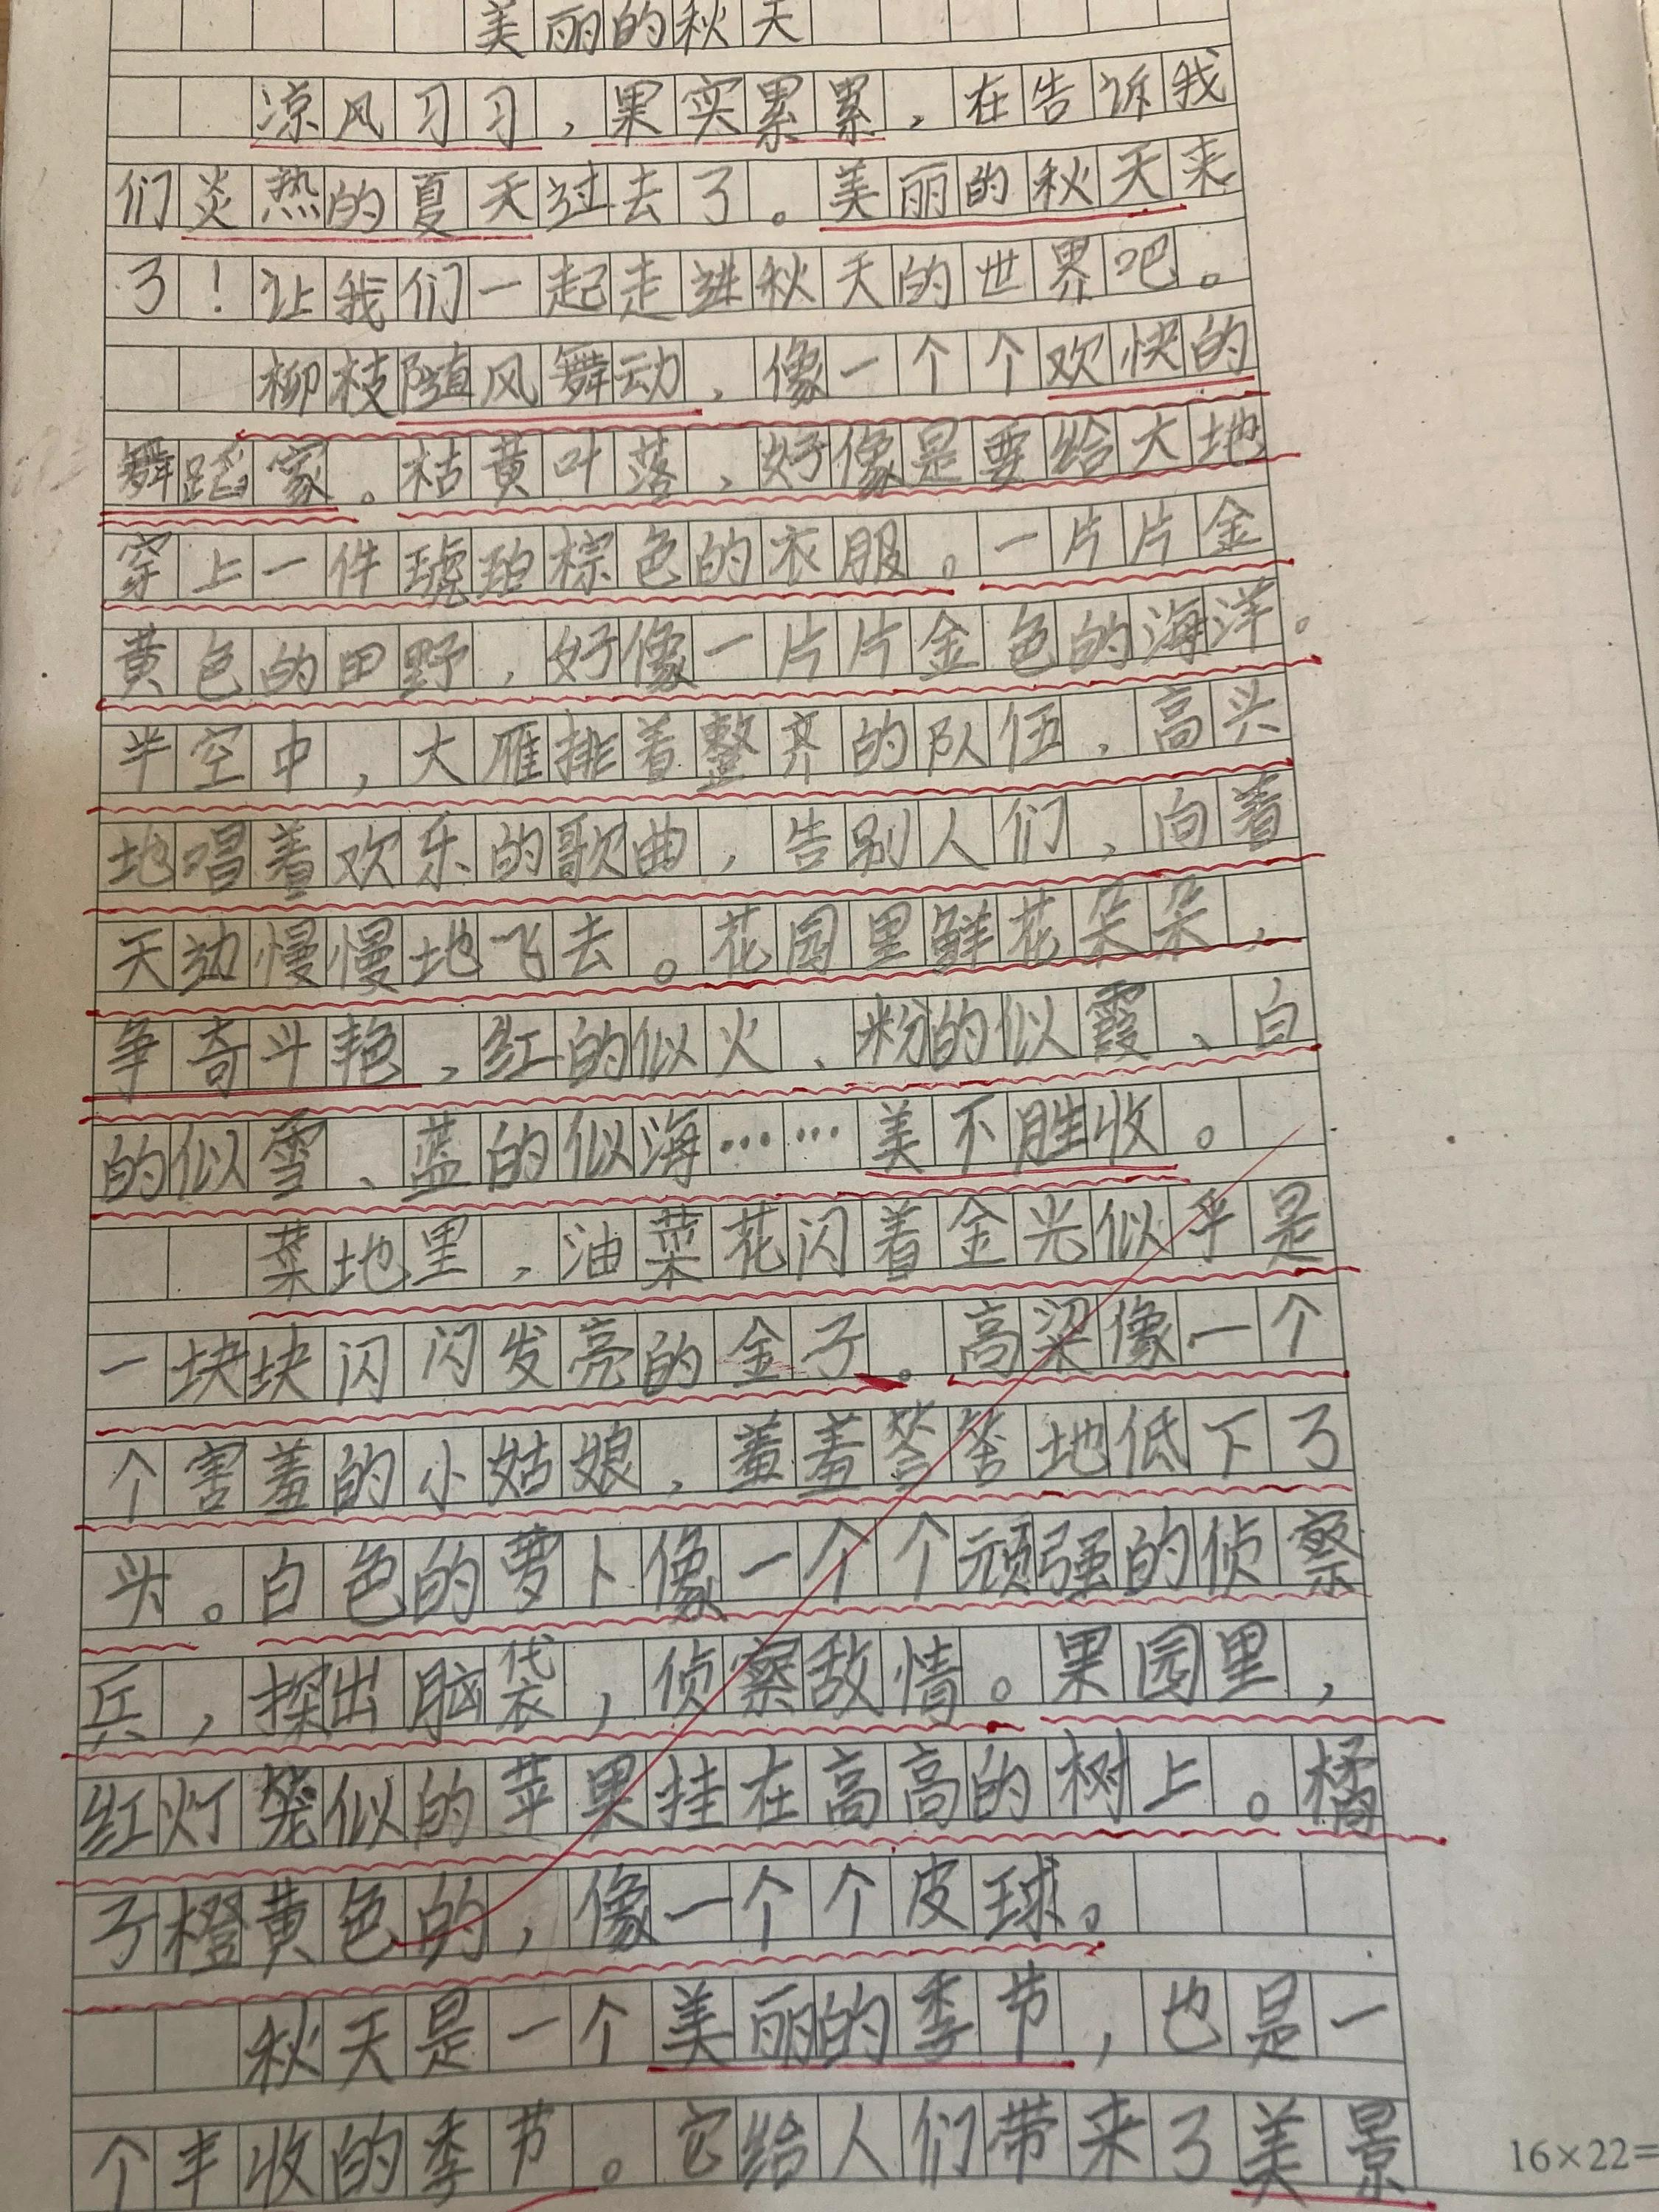 美丽的秋天
凉风习习，果实累累，在告诉我
们炎热的夏天过去了。美丽的秋天来
了！让我们一起走进秋天的世界吧。
柳枝随风舞动，像一个个欢快的
舞蹈家。枯黄叶落，好像是要给大地
穿上一件琥珀棕色的衣服。一片片金
黄色的田野，好像一片片金色的海洋。
半空中，大雁排着整齐的队伍，高兴
地唱着欢乐的歌曲，告别人们，向着
天边慢慢地飞去。花园里鲜花朵朵，
争奇斗艳，红的似火、粉的似霞、白
的似雪、蓝的似海……美不胜收。
菜地里，油菜花闪着金光似乎是
一块块闪闪发亮的金子。高粱像一个
个害羞的小姑娘，羞羞答答地低下了
头。白色的萝卜像一个个顽强的侦察
兵，探出脑袋，侦察敌情。果园里，
红灯笼似的苹果挂在高高的树上。橘
子橙黄色的，像一个个皮球。
秋天是一个美丽的季节，也是一
个丰收的季节。它给人们带来了美景
16×22=